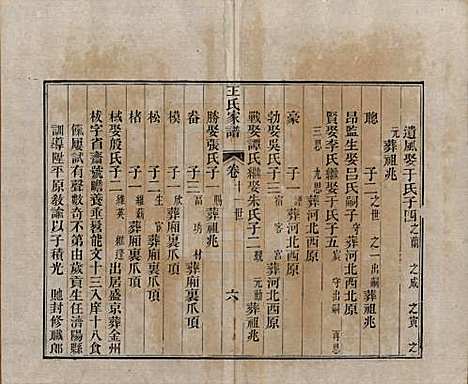 遺風娶于氏子四 之蘭 之成 之寅 之元 葬祖兆
聰 子二 之世 之一出嗣 葬祖兆
昂 監生娶呂氏嗣子 守 葬河北西原
賢 娶李氏繼娶于氏子五 守出嗣 再思 三思 九思 葬河北西原
豪 子一 葬河北西原
勃 娶吳氏子二 葬河北西原
戰 娶譚氏繼娶朱氏子二 元勳 葬祖兆
勝 娶張氏子一 葬祖兆
畬 子二 福 葬廂裏爪頂
模 子一 葬廂裏爪頂
松 子一 葬廂裏爪頂
楮 子一 葬廂裏爪頂
棫 娶殷氏子二 維英 維蓬 出居盛京葬金州
棫字省齋號瞻養垂髫能文十三入庠十八食
餼屢試有聲數奇不第由歲貢生任濟陽縣
訓導陞平原敎諭以子積光 馳封修職郎
王氏家譜 卷 十一世 六